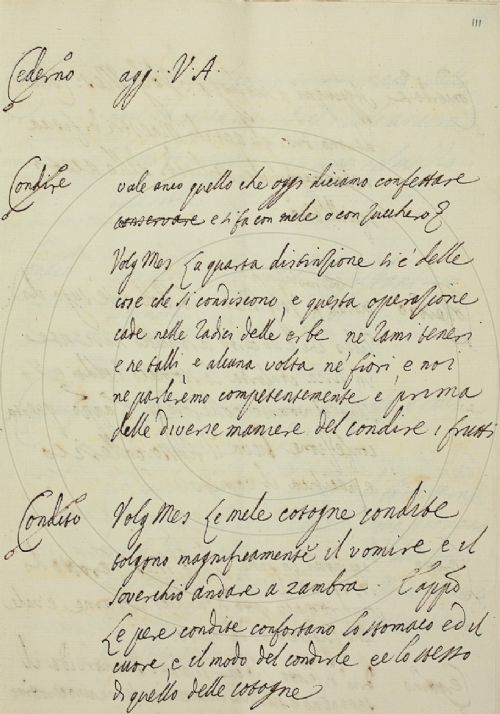 111
Cederno agg: V. A.
Condire vale anco quello che oggi diciamo confettare
conservare e si fa con mele o con zucchero
Volg Mes La quarta distinzione si è delle
cose che si condiscono, e questa operazione
cade nelle radici delle erbe ne rami teneri
e ne talli e alcuna volta ne fiori e noi
ne parleremo competentemente e prima
delle diverse maniere del condire i frutti
Condito Volg Mes Le mele cotogne condite
tolgono magnificamente il vomire e il
soverchio andare a zambra. E appo
Le pere condite confortano lo stomaco ed il
cuore, e il modo del condirle ee lo stesso
di quello delle cotogne